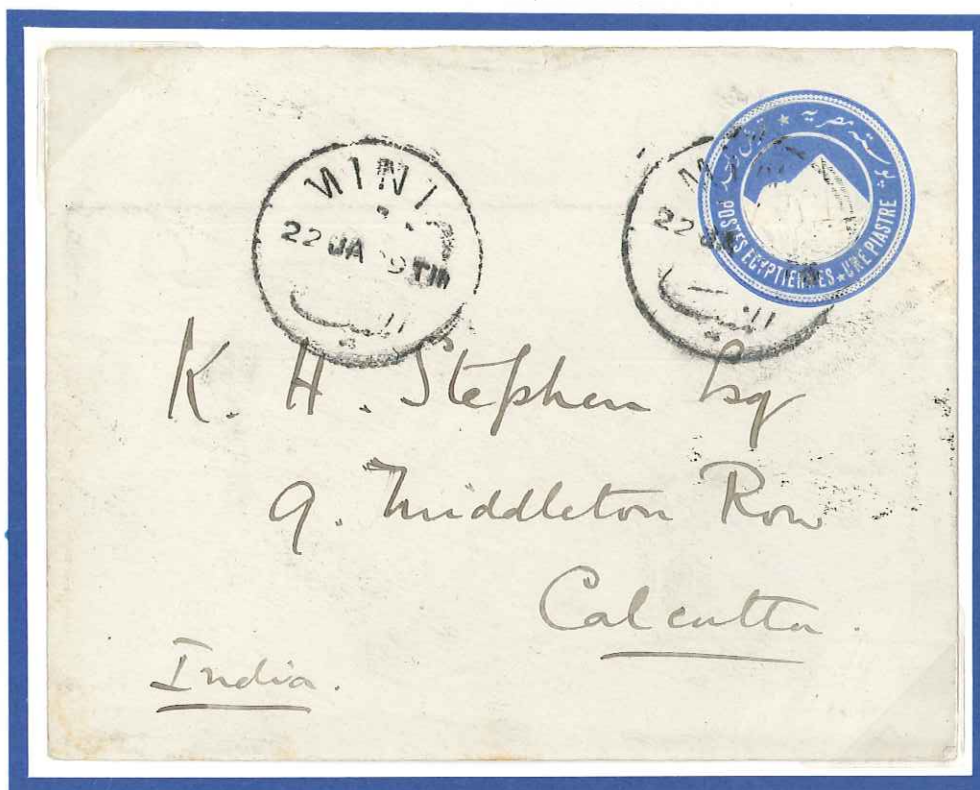 MINIA
22 JA 9 TIII
المنيا
22 JA
المنيا
بوسته مصريه
POSTES EGYPTIENNES ★ UNE PIASTRE
K. H. Stephen Esq
9. Middleton Row
Calcutta.
India.